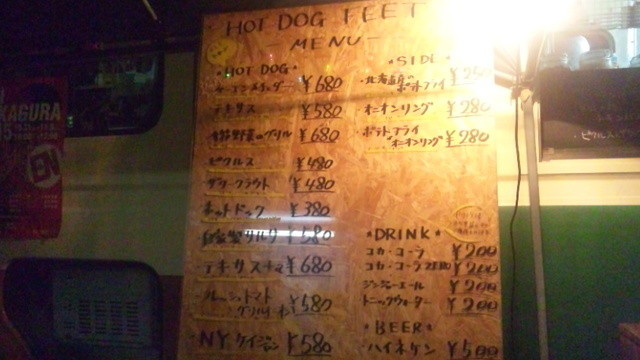 HOT DOG FEET
MENU
HOT DOG
¥680
テキサス ¥580
¥680
ピクルス ¥480
ザワークラウト ¥480
ホットドック ¥380
自家製サルサ ¥580
テキサス ¥680
フレッシュトマト
グリル ¥580
NYケイジャン ¥580
SIDE
北海道産の
ポテトフライ
オニオンリング ¥280
ポテトフライ
オニオンリング ¥280
DRINK
コカ・コーラ ¥200
コカ・コーラZERO ¥200
ジンジャーエール ¥200
トニックウォーター ¥200
BEER
ハイネケン ¥500
KAGURA
EN
ピクルス